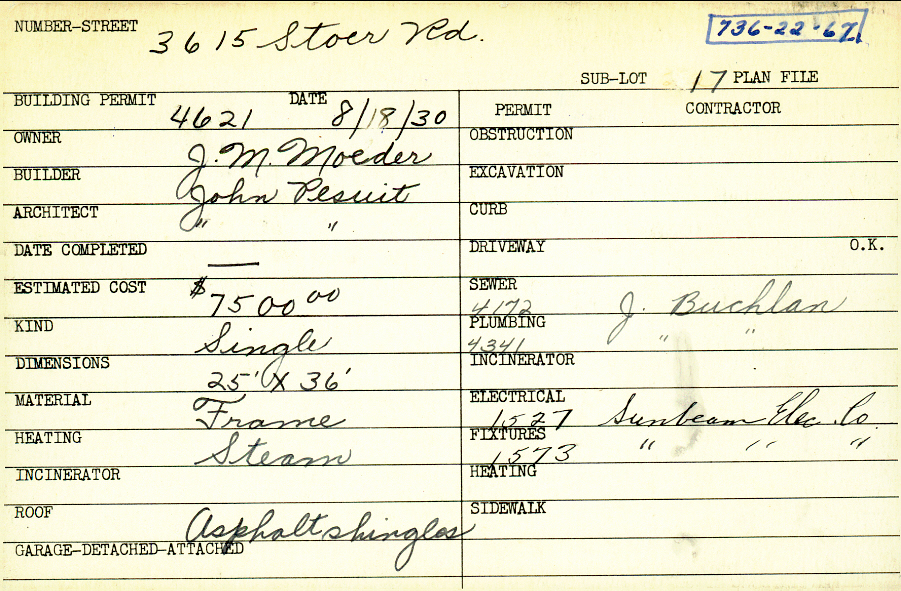 NUMBER-STREET 3615 Stoer Rd. 736-22-67
SUB-LOT 17 PLAN FILE
BUILDING PERMIT 4621 DATE 8/18/30
OWNER J. M. Moeder
BUILDER John Pesuit
ARCHITECT " "
DATE COMPLETED —
ESTIMATED COST $7500 00
KIND Single
DIMENSIONS 25' X 36'
MATERIAL Frame
HEATING Steam
INCINERATOR
ROOF Asphalt shingles
GARAGE-DETACHED-ATTACHED
PERMIT CONTRACTOR
OBSTRUCTION
EXCAVATION
CURB
DRIVEWAY O.K.
SEWER 4172 J. Buchlan
PLUMBING 4341 " "
INCINERATOR
ELECTRICAL 1527 Sunbeam Elec. Co.
FIXTURES 1573 " " "
HEATING
SIDEWALK